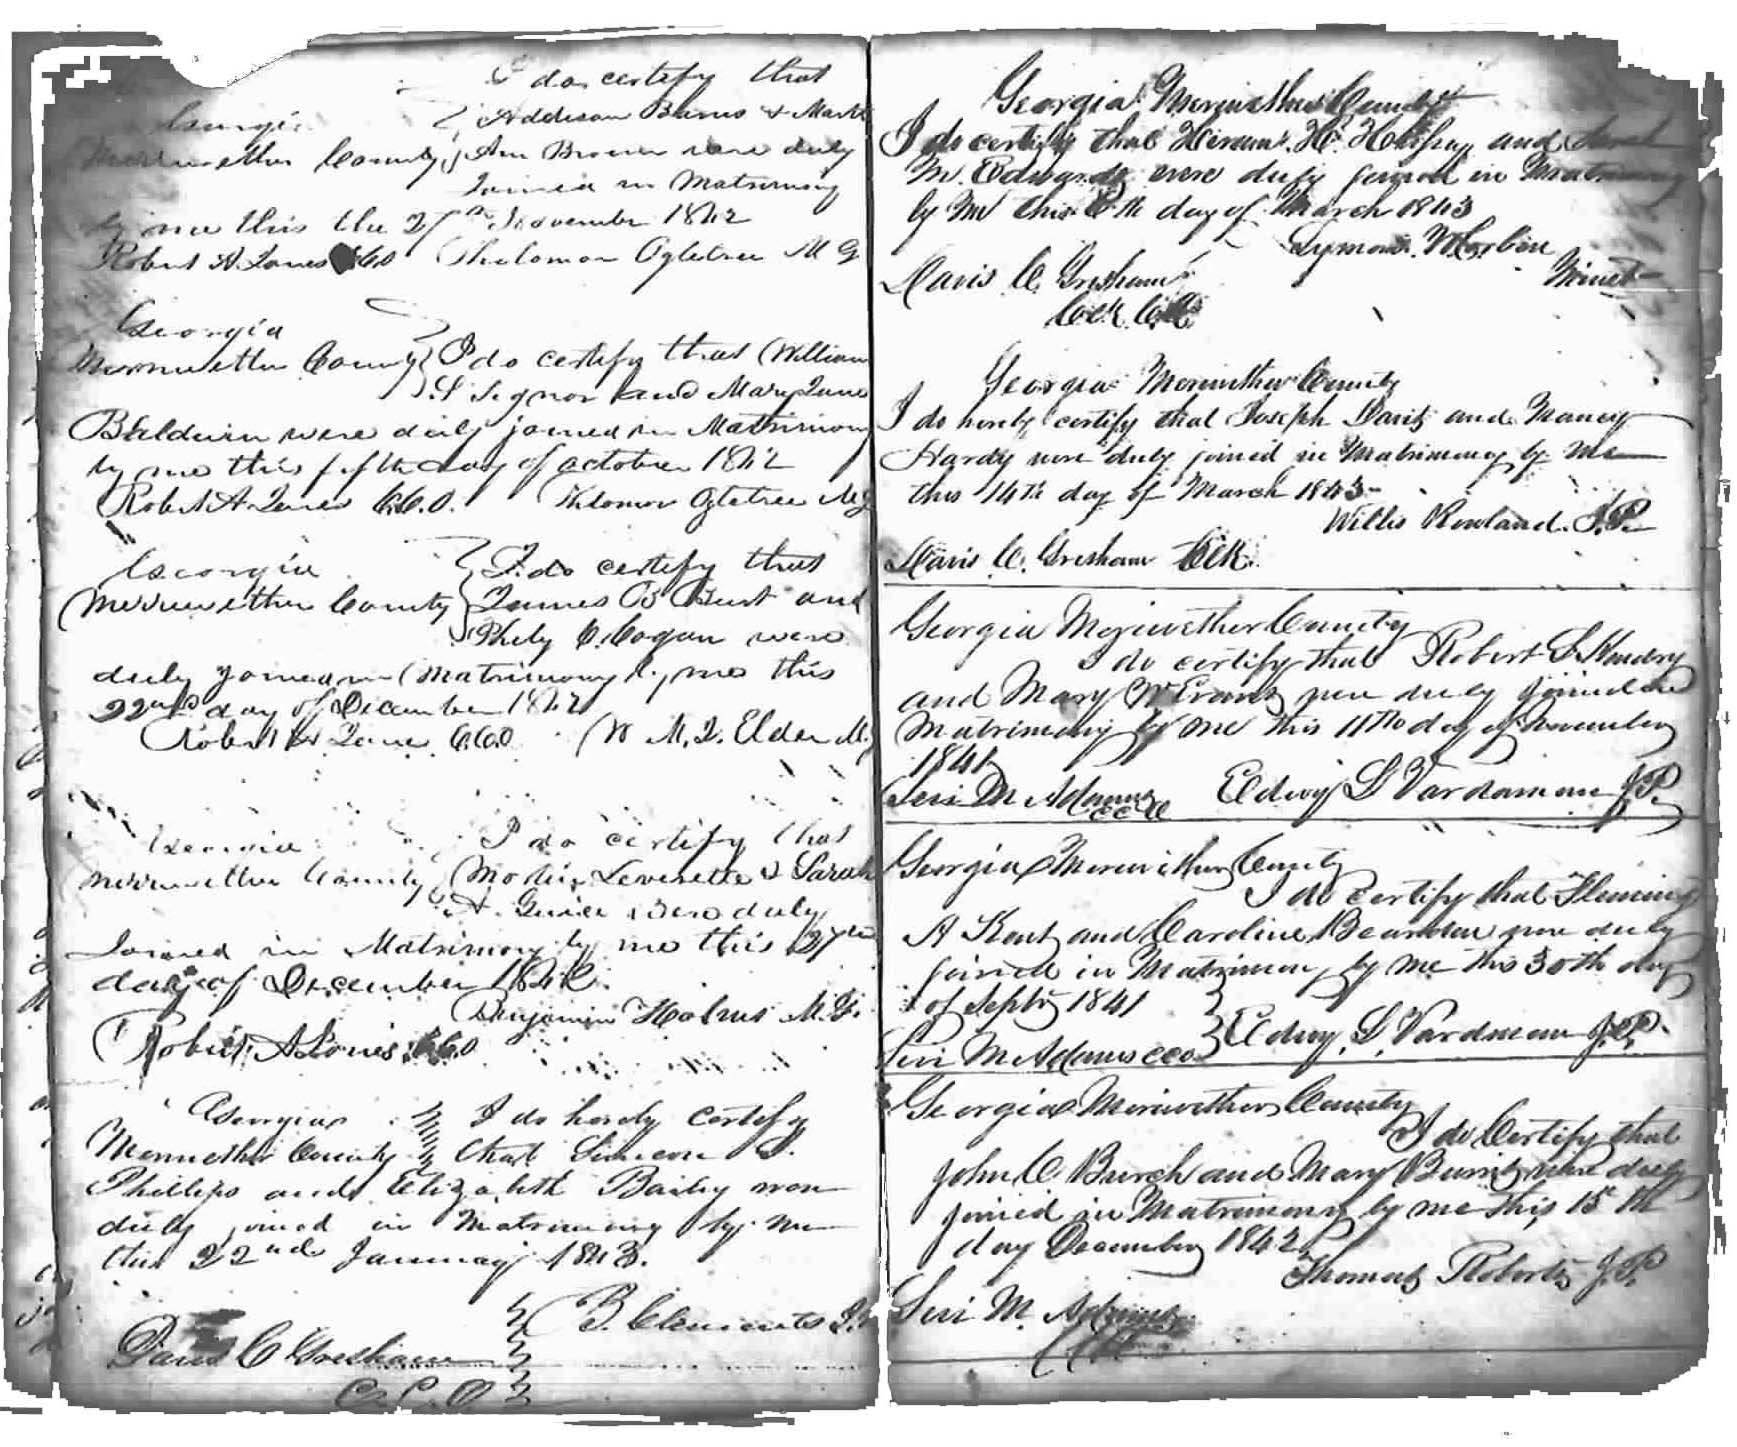 I do certify that
Georgia Addison Burns & Marth
Merriwether County Ann Brown were duly
Joined in Matrimony
by me this the 2 November 1842
Robert A Jones CCO Thelomon Ogletree M G
Georgia
Merriwether County I do certify that William
S Signor and Mary Jane
Baldwin were duly joined in Matrimony
by me this fifth day of October 1842
Robert A Jones C.C.O. Ogletree MG
Georgia I do certify that
Merriwether County James B Bust and
Phily C. Cogan were
duly joined in Matrimony by me this
22nd day of December 1842
Robert A Jones C.C.O W M. T. Elder M.
Georgia I do certify that
Merriwether County Leverette & Sarah
A. were duly
Joined in Matrimony by me this 27th
day of December 1842
Benjamin Holmes M.G.
Robert A Jones CCO
Georgia I do hereby certify
Merriwether County that Simeon
Phillips and Elizabeth Bailey were
duly joined in Matrimony by me
this 22nd January 1843.
B. Clements J.
Davis C Gresham
C. C. O
Georgia Meriwether County
I do certify that Hiram H. and Sarah
M. Edwards were duly joined in Matrimony
by Me this 6th day of March 1843
Minist
Davis C. Gresham
Clk
Georgia Meriwether County
I do hereby certify that Joseph Davis and Nancy
Hardy were duly joined in Matrimony by Me
this 14th day of March 1843
Willis Rowland. J.P.
Davis C. Gresham Clk
Georgia Meriwether County
I do certify that Robert S. Hendry
and Mary W Evans were duly joined in
Matrimony by me this 11th day of November
1841
Levi M Adams CCO Edwy S Vardaman J.P.
Georgia Meriwether County
I do certify that Fleming
A Kent and Caroline Bearden were duly
joined in Matrimony by me this 30th day
of Septr 1841
Levi M Adams CCO Edwy. S. Vardman J.P.
Georgia Meriwether County
I do Certify that
John C Burch and Mary were duly
joined in Matrimony by me this 15th
day December 1842
Thomas Roberts J.P.
Levi M. Adams